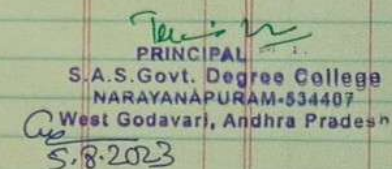 PRINCIPAL
S.A.S.Govt. Degree College
NARAYANAPURAM-534407
West Godavari, Andhra Pradesh
5.8.2023